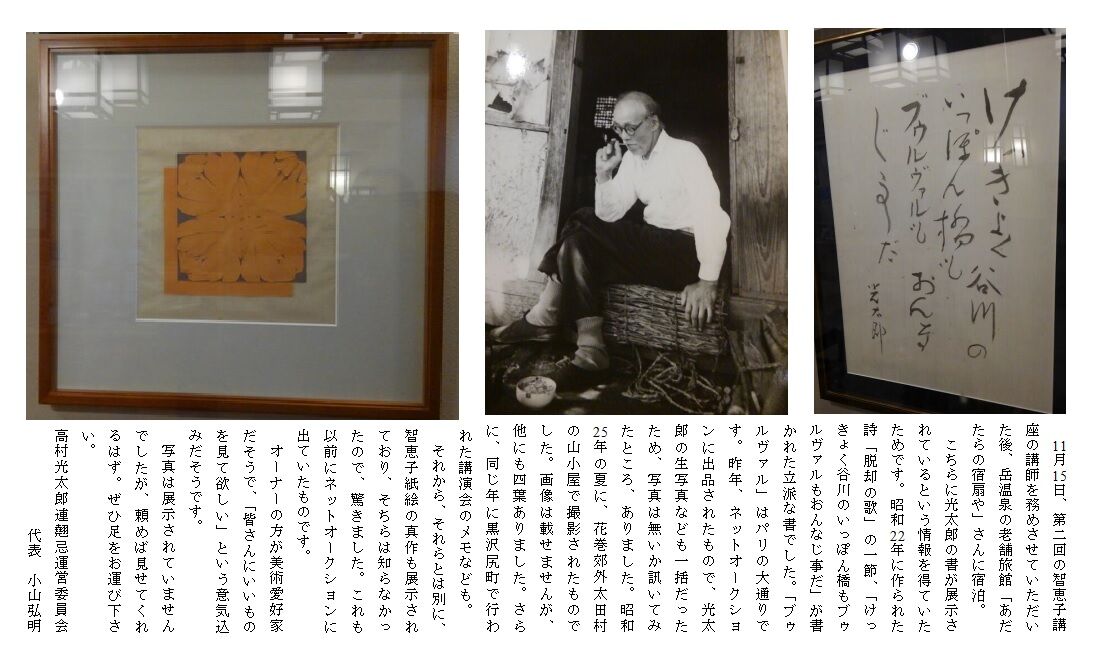 けつきよく谷川の
いつぽん橋も
ブウルヴァルも おんな
じ事だ
光太郎
11月15日、第二回の智恵子講
座の講師を務めさせていただい
た後、岳温泉の老舗旅館「あだ
たらの宿扇や」さんに宿泊。
こちらに光太郎の書が展示さ
れているという情報を得ていた
ためです。昭和22年に作られた
詩「脱却の歌」の一節、「けっ
きょく谷川のいっぽん橋もブゥ
ルヴァルもおんなじ事だ」が書
かれた立派な書でした。「ブゥ
ルヴァル」はパリの大通りで
す。昨年、ネットオークショ
ンに出品されたもので、光太
郎の生写真なども一括だった
ため、写真は無いか訊いてみ
たところ、ありました。昭和
25年の夏に、花巻郊外太田村
の山小屋で撮影されたもので
した。画像は載せませんが、
他にも四葉ありました。さら
に、同じ年に黒沢尻町で行わ
れた講演会のメモなども。
それから、それらとは別に、
智恵子紙絵の真作も展示され
ており、そちらは知らなかっ
たので、驚きました。これも
以前にネットオークションに
出ていたものです。
オーナーの方が美術愛好家
だそうで、「皆さんにいいもの
を見て欲しい」という意気込
みだそうです。
写真は展示されていません
でしたが、頼めば見せてくれ
るはず。ぜひ足をお運び下さ
い。
高村光太郎連翹忌運営委員会
代表 小山弘明